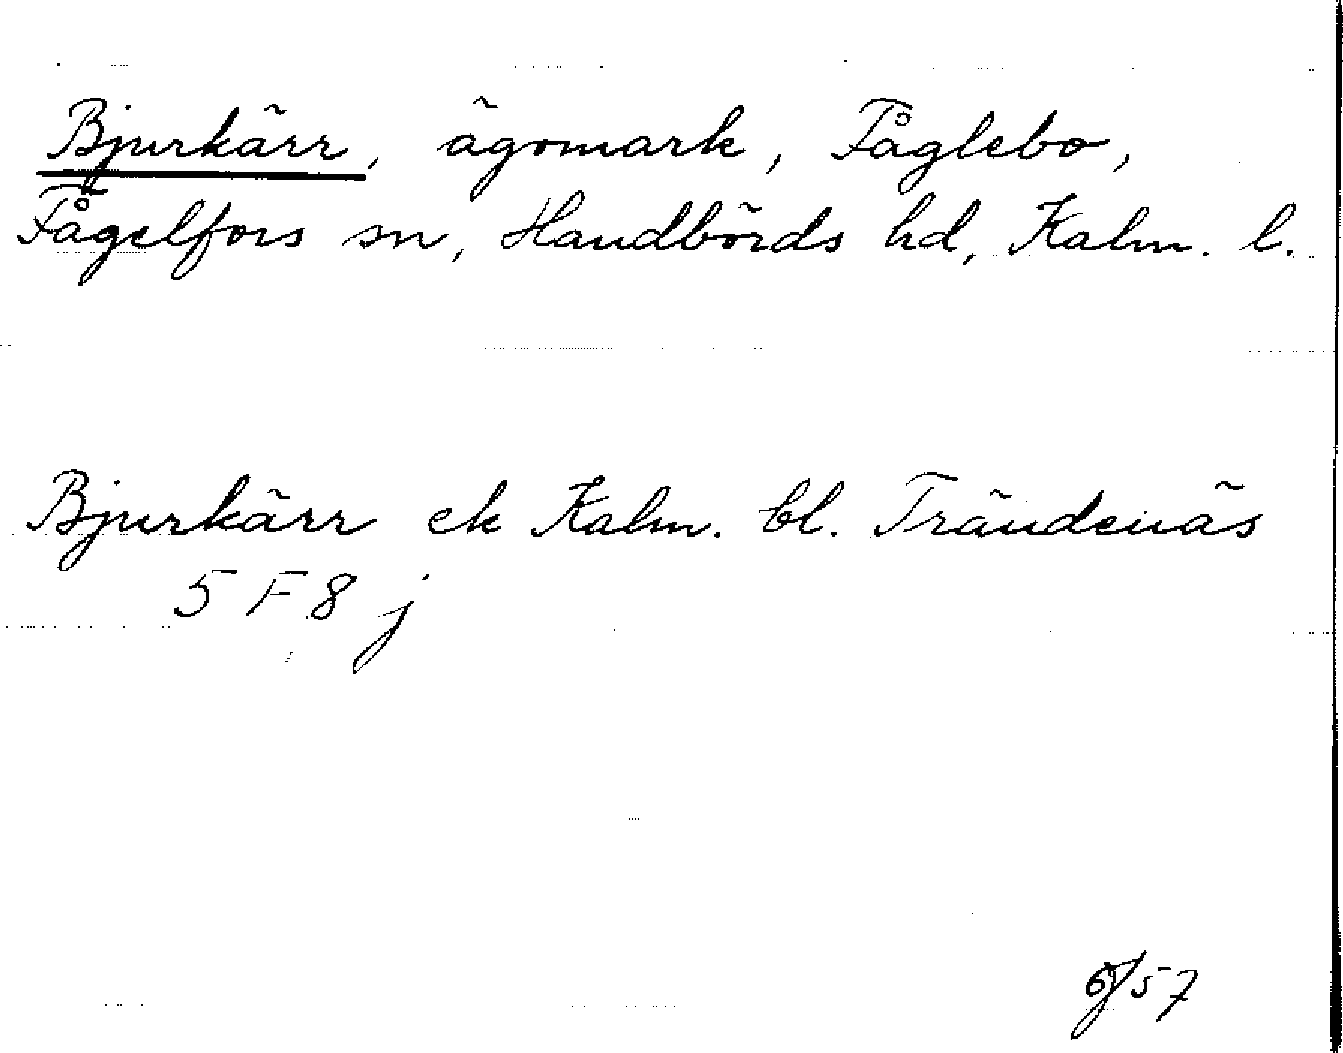 Bjurkärr, ägomark, Fåglebo,
Fågelfors sn, Handbörds hd, Kalm. l.
Bjurkärr ek Kalm. bl. Trändenäs
5 F 8 j